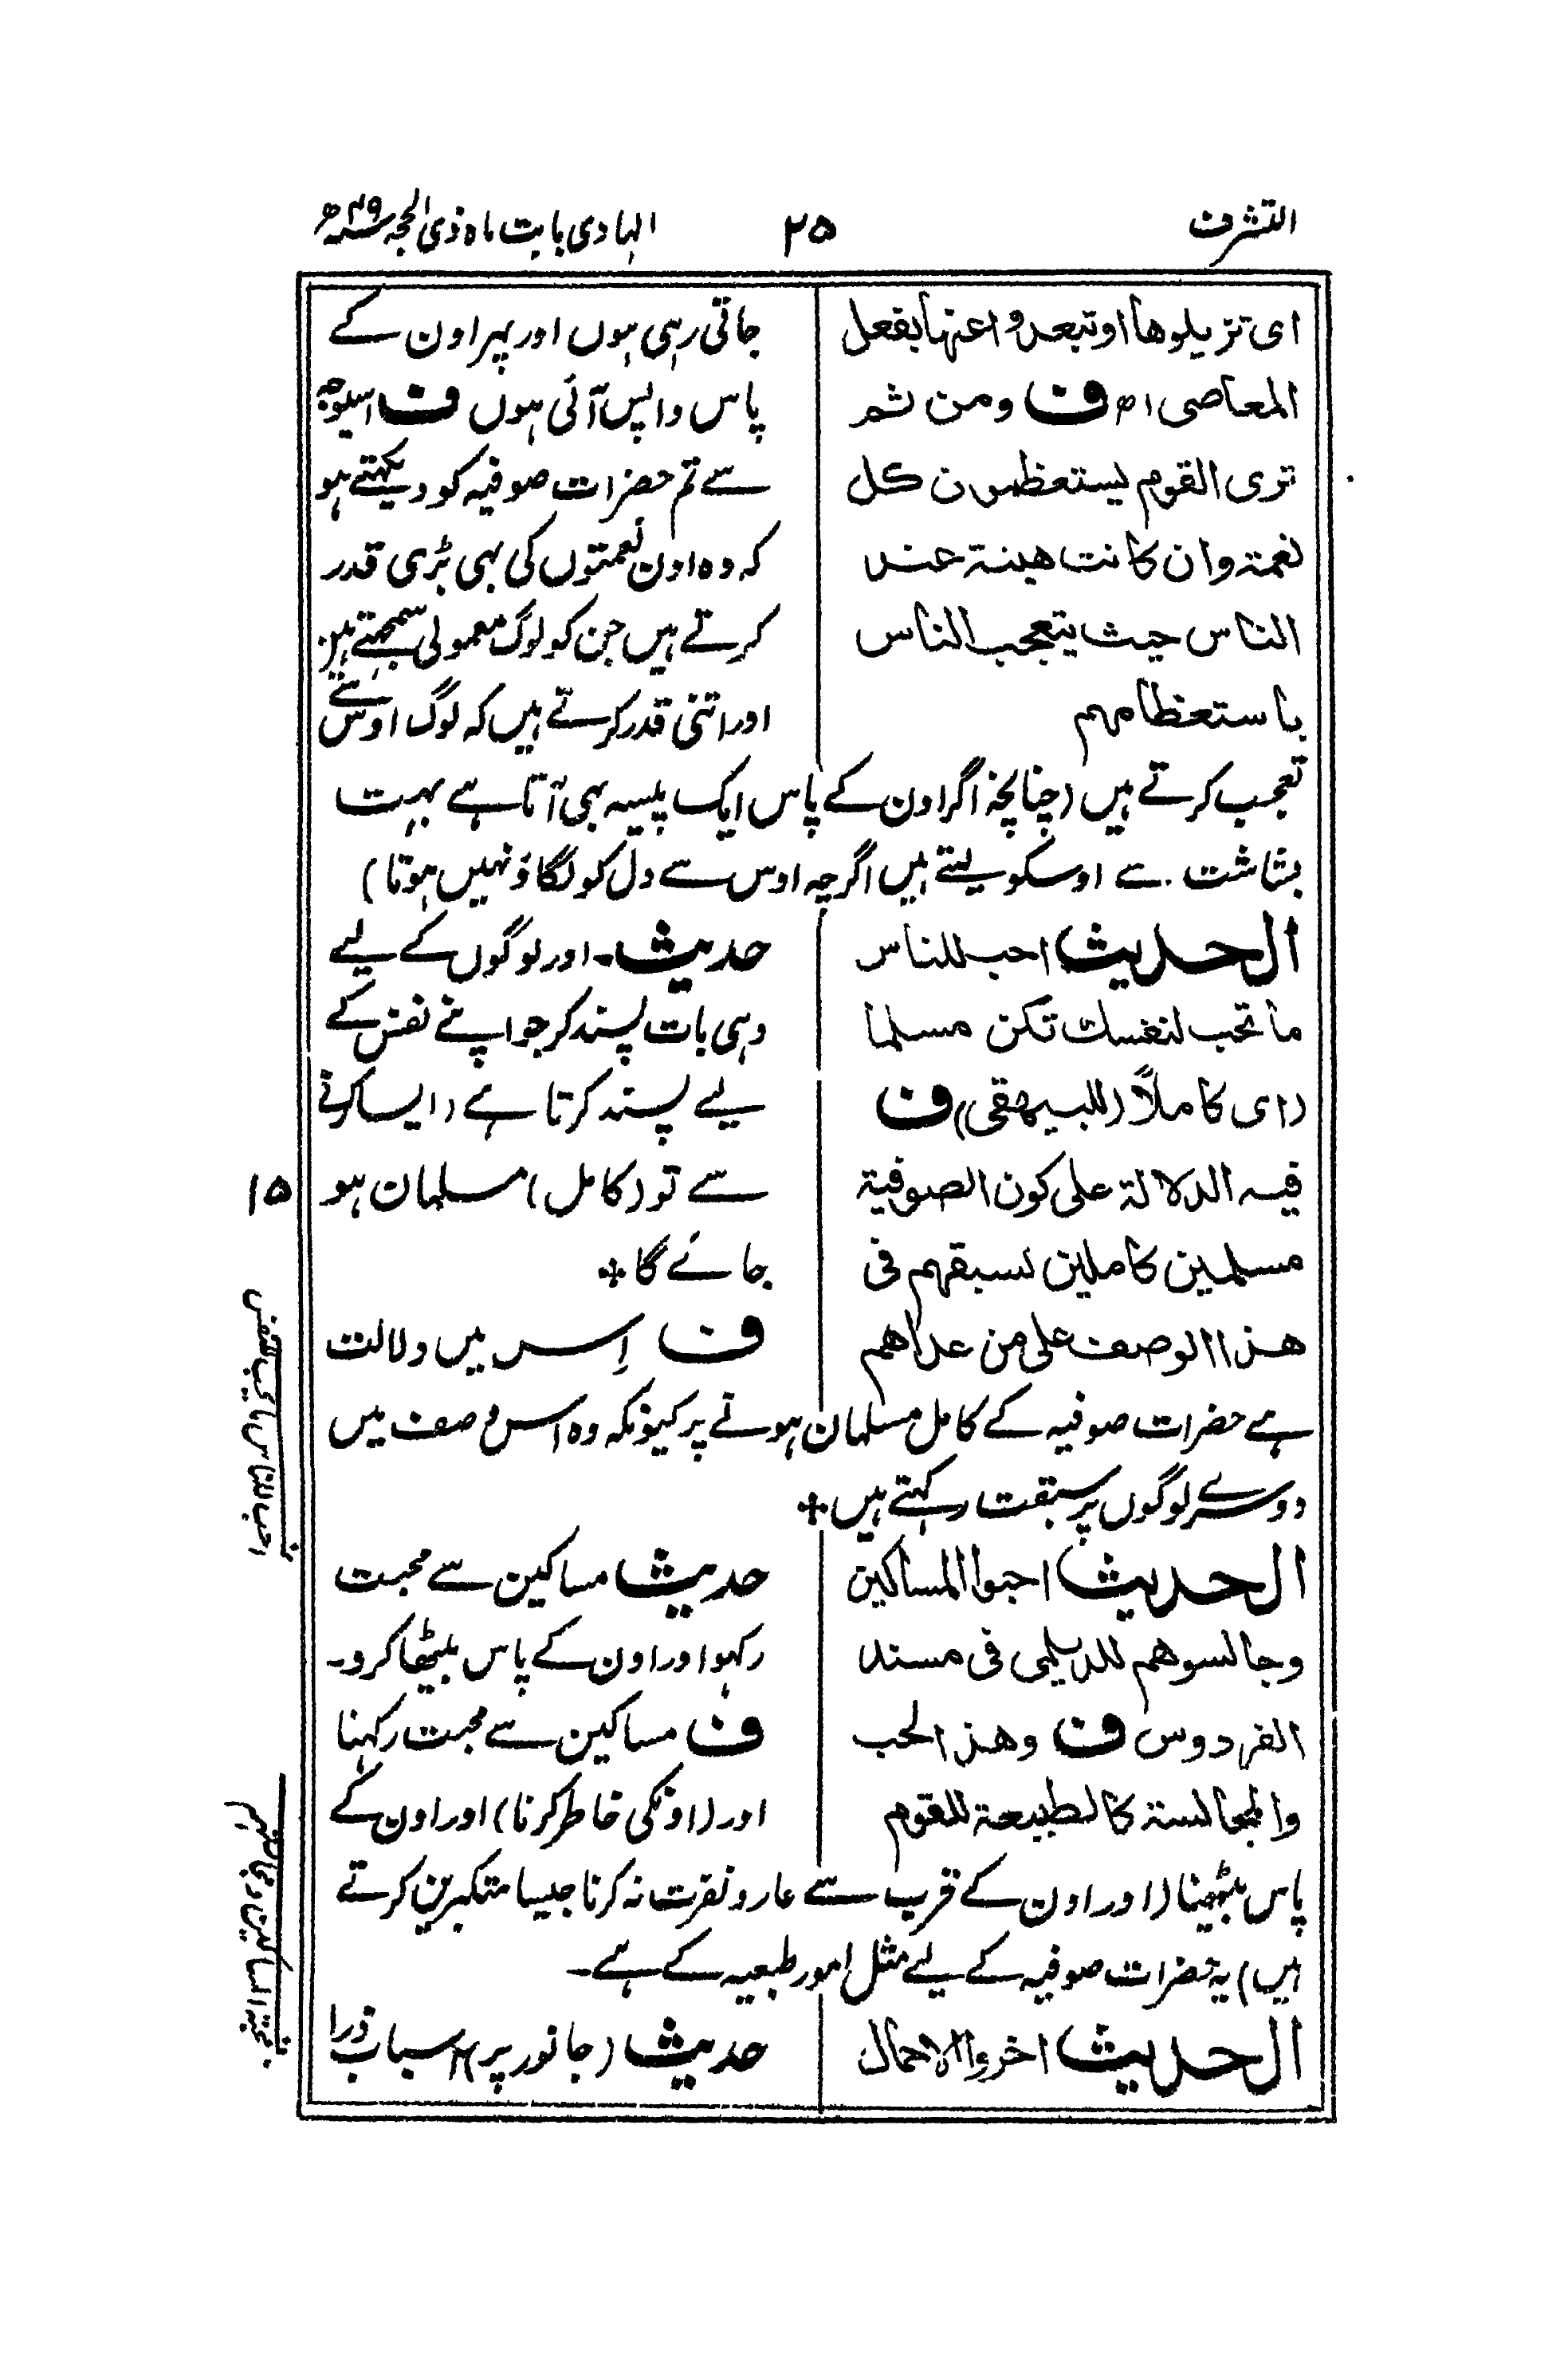 التشرف
۲۵
الہادی بابت ماہ ذی الحجہ سنہ ۴۹ھ
ای تزیلوها او تبعدوا عنها بفعل
المعاصی اھ ف ومن ثم
تری القوم یستعظمون کل
نعمة وان کانت هینة عند
الناس حیث یتعجب الناس
باستعظامهم
جاتی رہی ہوں اور پہر اون کے
پاس واپس آئی ہوں ف اسیوجہ
سے تم حضرات صوفیہ کو دیکہتے ہو
کہ وہ اون نعمتوں کی بہی بڑی قدر
کرتے ہیں جن کو لوگ معمولی سمجہتے ہیں
اور اتنی قدر کرتے ہیں کہ لوگ اوس سے
تعجب کرتے ہیں (چنانچہ اگر اون کے پاس ایک پیسہ بہی آتا ہے بہت
بشاشت سے اوسکو لیتے ہیں اگرچہ اوس سے دل کو لگاؤ نہیں ہوتا)
الحدیث احب للناس
ما تحب لنفسك تکن مسلما
(ای کاملاً (للبیهقی) ف
فیه الدلالة علی کون الصوفیة
مسلمین کاملین لسبقهم فی
هذا الوصف علی من عداهم
حدیث۔ اور لوگوں کے لیے
وہی بات پسند کر جو اپنے نفس کے
لیے پسند کرتا ہے (ایسا کرنے
سے تو (کامل) مسلمان ہو
جائے گا
ف اِس میں دلالت
ہے حضرات صوفیہ کے کامل مسلمان ہونے پر کیونکہ وہ اس وصف میں
دوسرے لوگوں پر سبقت رکہتے ہیں
الحدیث احبوا المساکین
وجالسوهم للدیلمی فی مسند
الفردوس ف وهذا الحب
والمجالسة کالطبیعة للقوم
حدیث مساکین سے محبت
رکہو اور اون کے پاس بیٹھا کرو۔
ف مساکین سے محبت رکہنا
اور (اونکی خاطر کرنا) اور اون کے
پاس بیٹھنا (اور اون کے قریب سے عار و نفرت نہ کرنا جیسا متکبرین کرتے
ہیں) یہ حضرات صوفیہ کے لیے مثل امور طبعیہ کے ہے۔
الحدیث اخروا الاحمال
حدیث (جانور پر) اسباب ذرا
۱۵
احب للناس ما یحب لنفس
المساکین ومجالستہم